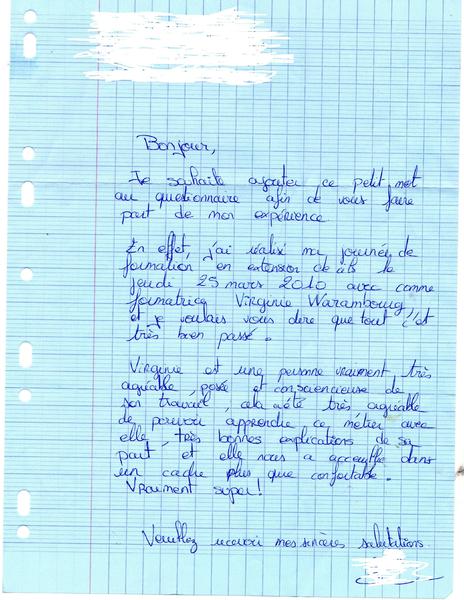 Bonjour,
Je souhaite ajouter ce petit mot
au questionnaire afin de vous faire
part de mon expérience
En effet, j'ai réalisé ma journée de
formation en extension de cils le
jeudi 25 mars 2010 avec comme
formatrice Virginie Warambourg,
et je voulais vous dire que tout c'est
très bien passé.
Virginie est une personne vraiment très
agréable, posée et consciencieuse de
son travail, cela a été très agréable
de pouvoir apprendre ce métier avec
elle, très bonnes explications de sa
part et elle nous a accueillie dans
un cadre plus que confortable.
Vraiment super!
Veuillez recevoir mes sincères salutations.